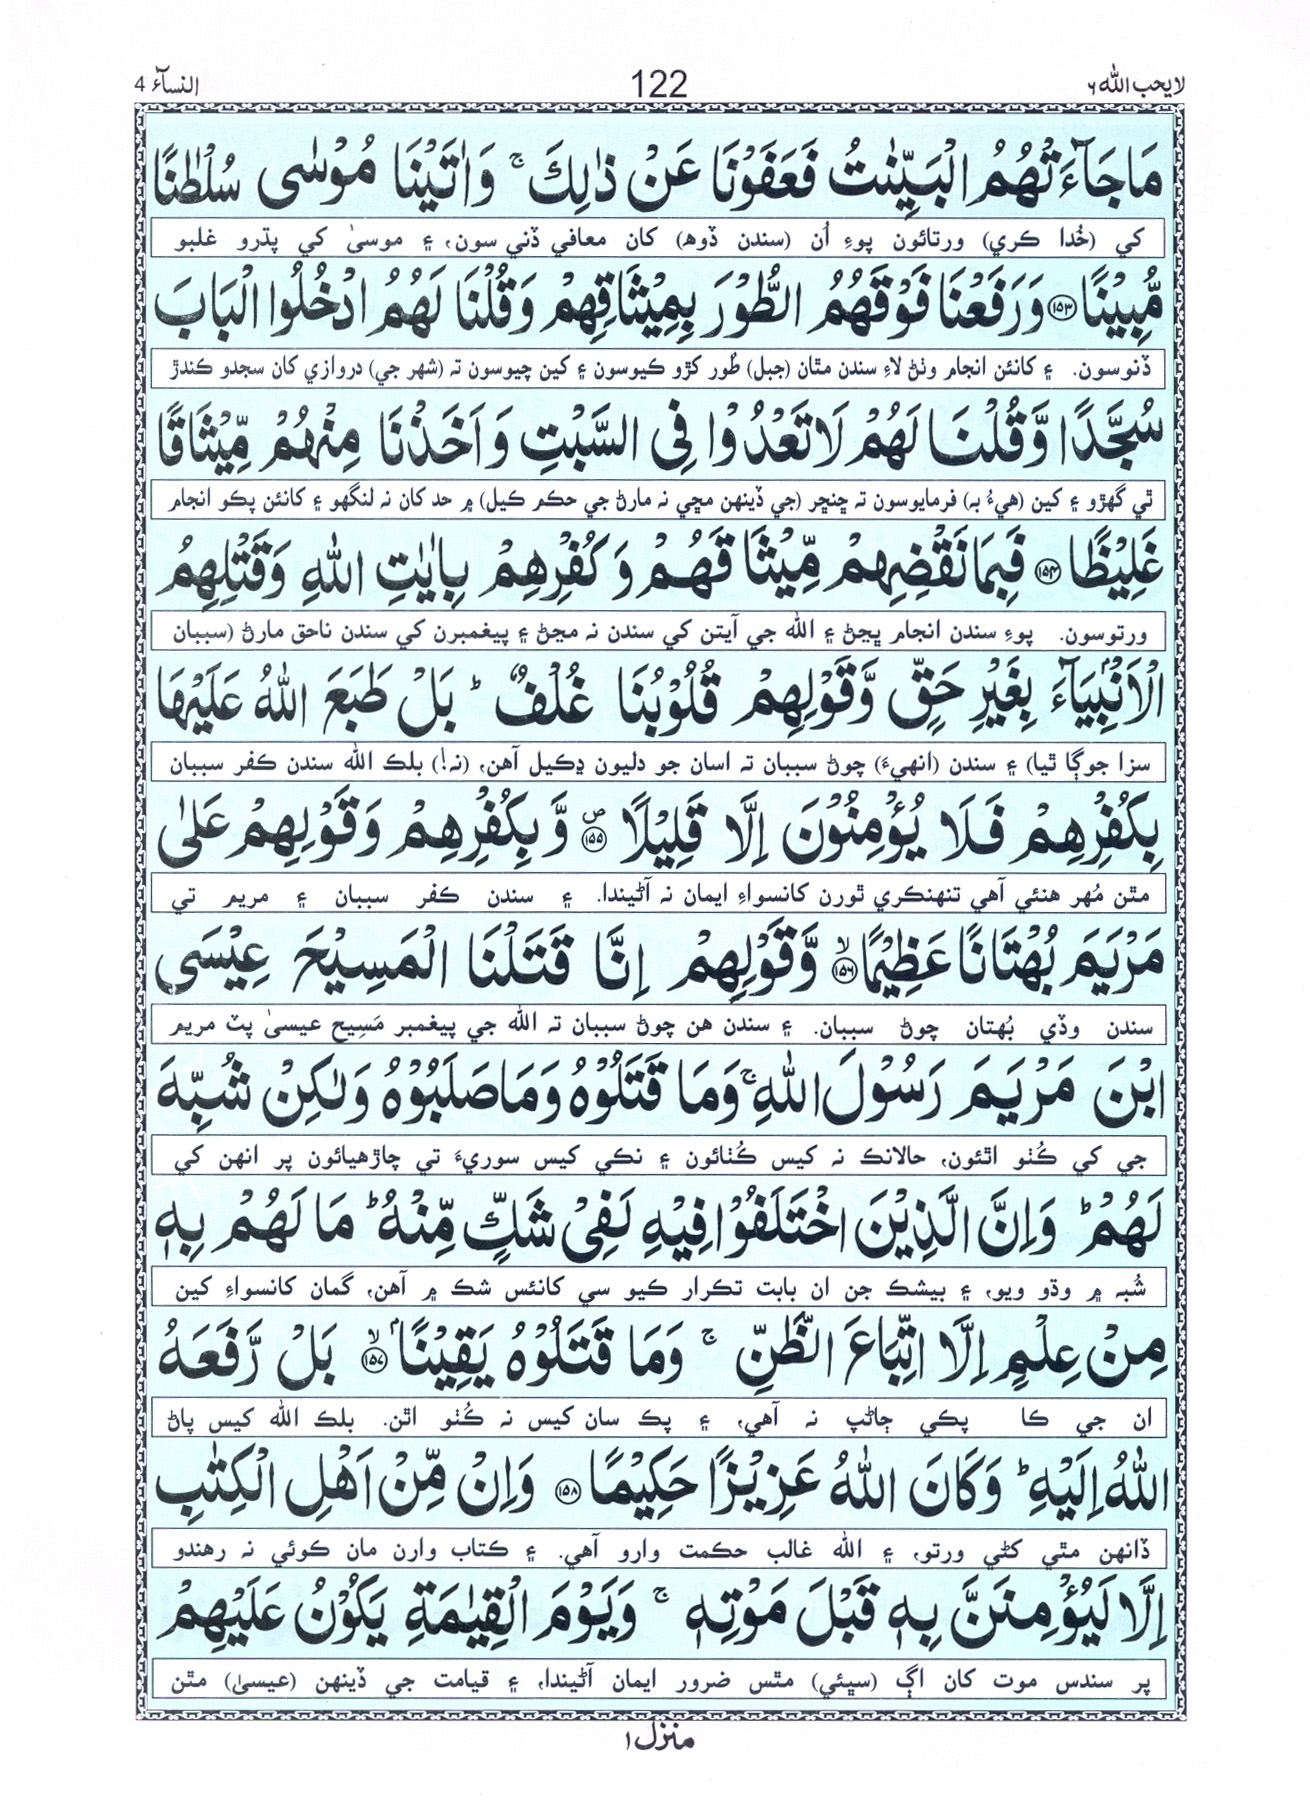 لا يحب الله ٦ 122 النسآء 4
مَا جَآءَتْهُمُ الْبَيِّنٰتُ فَعَفَوْنَا عَنْ ذٰلِكَ ۚ وَاٰتَيْنَا مُوْسٰى سُلْطٰنًا
کي (خُدا ڪري) ورتائون پوءِ اُن (سندن ڏوھ) کان معافي ڏني سون، ۽ موسىٰ کي پڌرو غلبو
مُّبِيْنًا ۝١٥٣ وَرَفَعْنَا فَوْقَهُمُ الطُّوْرَ بِمِيْثَاقِهِمْ وَقُلْنَا لَهُمُ ادْخُلُوا الْبَابَ
ڏنوسون. ۽ کانئن انجام وٺڻ لاءِ سندن مٿان (جبل) طُور کڙو ڪيوسون ۽ کين چيوسون تہ (شهر جي) دروازي کان سجدو ڪندڙ
سُجَّدًا وَّقُلْنَا لَهُمْ لَا تَعْدُوْا فِى السَّبْتِ وَاَخَذْنَا مِنْهُمْ مِّيْثَاقًا
ٿي گھڙو ۽ کين (هيءُ بہ) فرمايوسون تہ ڇنڇر (جي ڏينهن مڇي نہ مارڻ جي حڪم ڪيل) ۾ حد کان نہ لنگھو ۽ کانئن پڪو انجام
غَلِيْظًا ۝١٥٤ فَبِمَا نَقْضِهِمْ مِّيْثَاقَهُمْ وَكُفْرِهِمْ بِاٰيٰتِ اللّٰهِ وَقَتْلِهِمُ
ورتوسون. پوءِ سندن انجام ڀڃڻ ۽ الله جي آيتن کي سندن نہ مڃڻ ۽ پيغمبرن کي سندن ناحق مارڻ (سببان
الْاَنْۢبِيَآءَ بِغَيْرِ حَقٍّ وَّقَوْلِهِمْ قُلُوْبُنَا غُلْفٌ ؕ بَلْ طَبَعَ اللّٰهُ عَلَيْهَا
سزا جوڳا ٿيا) ۽ سندن (انهيءَ) چوڻ سببان تہ اسان جو دليون ڍڪيل آهن، (نہ!) بلڪ الله سندن ڪفر سببان
بِكُفْرِهِمْ فَلَا يُؤْمِنُوْنَ اِلَّا قَلِيْلًا ۝١٥٥ۖ وَّبِكُفْرِهِمْ وَقَوْلِهِمْ عَلٰى
مٿن مُهر هنئي آهي تنهنڪري ٿورن کانسواءِ ايمان نہ آڻيندا. ۽ سندن ڪفر سببان ۽ مريم تي
مَرْيَمَ بُهْتَانًا عَظِيْمًا ۝١٥٦ۙ وَّقَوْلِهِمْ اِنَّا قَتَلْنَا الْمَسِيْحَ عِيْسَى
سندن وڏي بُهتان چوڻ سببان. ۽ سندن هن چوڻ سببان تہ الله جي پيغمبر مَسِيح عيسىٰ پٽ مريم
ابْنَ مَرْيَمَ رَسُوْلَ اللّٰهِ ۚ وَمَا قَتَلُوْهُ وَمَا صَلَبُوْهُ وَلٰكِنْ شُبِّهَ
جي کي ڪُٺو اٿئون، حالانڪ نہ کيس ڪُٺائون ۽ نڪي کيس سوريءَ تي چاڙهيائون پر انهن کي
لَهُمْ ؕ وَاِنَّ الَّذِيْنَ اخْتَلَفُوْا فِيْهِ لَفِىْ شَكٍّ مِّنْهُ ؕ مَا لَهُمْ بِهٖ
شُبہ ۾ وڌو ويو، ۽ بيشڪ جن ان بابت تڪرار ڪيو سي کانئس شڪ ۾ آهن، گمان کانسواءِ کين
مِنْ عِلْمٍ اِلَّا اتِّبَاعَ الظَّنِّ ۚ وَمَا قَتَلُوْهُ يَقِيْنًۢا ۝١٥٧ۙ بَلْ رَّفَعَهُ
ان جي ڪا پڪي ڄاڻپ نہ آهي، ۽ پڪ سان کيس نہ ڪُٺو اٿن. بلڪ الله کيس پاڻ
اللّٰهُ اِلَيْهِ ؕ وَكَانَ اللّٰهُ عَزِيْزًا حَكِيْمًا ۝١٥٨ وَاِنْ مِّنْ اَهْلِ الْكِتٰبِ
ڏانهن مٿي کڻي ورتو، ۽ الله غالب حڪمت وارو آهي. ۽ ڪتاب وارن مان ڪوئي نہ رهندو
اِلَّا لَيُؤْمِنَنَّ بِهٖ قَبْلَ مَوْتِهٖ ۚ وَيَوْمَ الْقِيٰمَةِ يَكُوْنُ عَلَيْهِمْ
پر سندس موت کان اڳ (سڀئي) مٿس ضرور ايمان آڻيندا، ۽ قيامت جي ڏينهن (عيسىٰ) مٿن
منزل ١